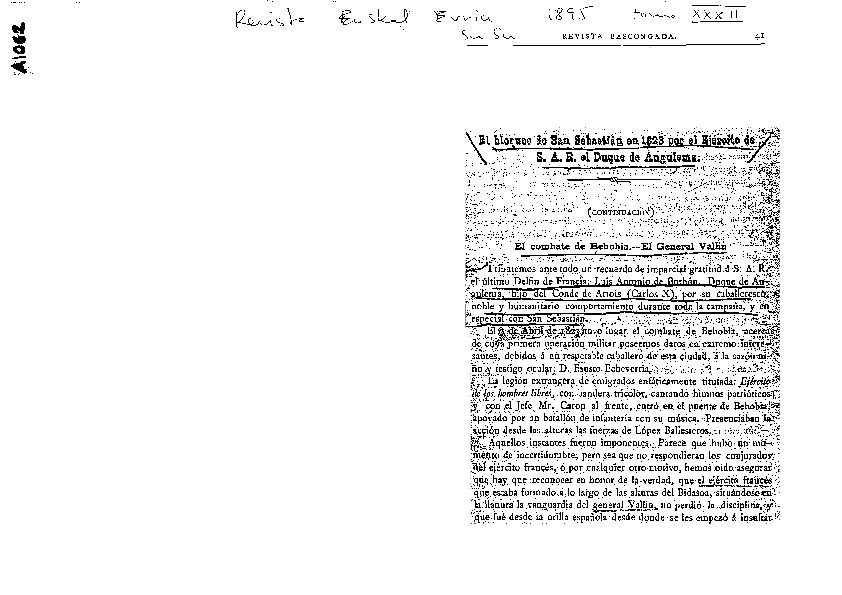 Revista Euskal Erria 1895 tomo XXXII
A1062
REVISTA BASCONGADA. 41
El bloqueo de San Sebastián en 1823 por el Ejército de
S. A. R. el Duque de Angulema.
(CONTINUACIÓN)
El combate de Behobia.--El General Vallin
Tributemos ante todo un recuerdo de imparcial gratitud á S. A. R.
el último Delfin de Francia: Luis Antonio de Borbón, Duque de An-
gulema, hijo del Conde de Artois (Carlos X), por su caballeresco,
noble y humanitario comportamiento durante toda la campaña, y en
especial con San Sebastián.
El de Abril de 1823 tuvo lugar el combate de Behobia, acerca
de cuya primera operación militar poseemos datos en extremo intere-
santes, debidos á un respetable caballero de esta ciudad, á la sazón ni-
ño y testigo ocular, D. Fausto Echeverría.
La legión extrangera de emigrados enfáticamente titulada: Ejército
de los hombres libres, con bandera tricolor, cantando himnos patrióticos
y con el Jefe Mr. Caron al frente, entró en el puente de Behobia
apoyado por un batallón de infantería con su música. Presenciaban la
acción desde las alturas las fuerzas de López Ballesteros.
Aquellos instantes fueron imponentes. Parece que hubo un mo-
mento de incertidumbre; pero sea que no respondieran los conjurados
del ejército francés, ó por cualquier otro motivo, hemos oido asegurar
que hay que reconocer en honor de la verdad, que el ejército francés
que estaba formado á lo largo de las alturas del Bidasoa, situándose en
la llanura la vanguardia del general Vallin, no perdió la disciplina, y
que fué desde la orilla española desde donde se les empezó á insultar